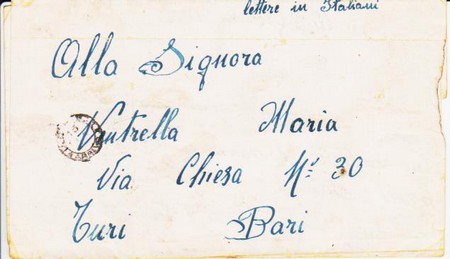 lettere in Italiani
Alla Signora
Ventrella Maria
Via Chiesa Nº 30
Turi Bari